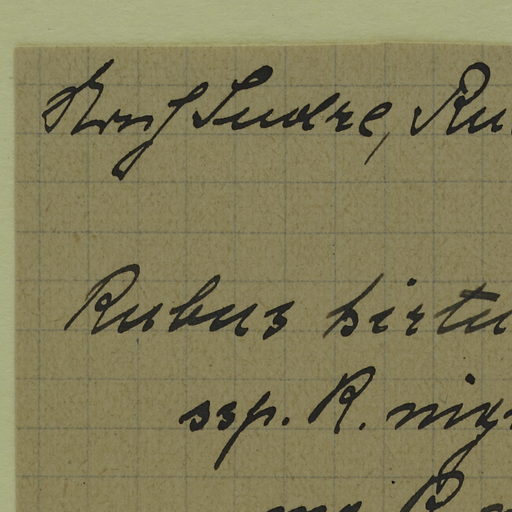 Sudre, Ru
Rubus hirtu
ssp. R. nig